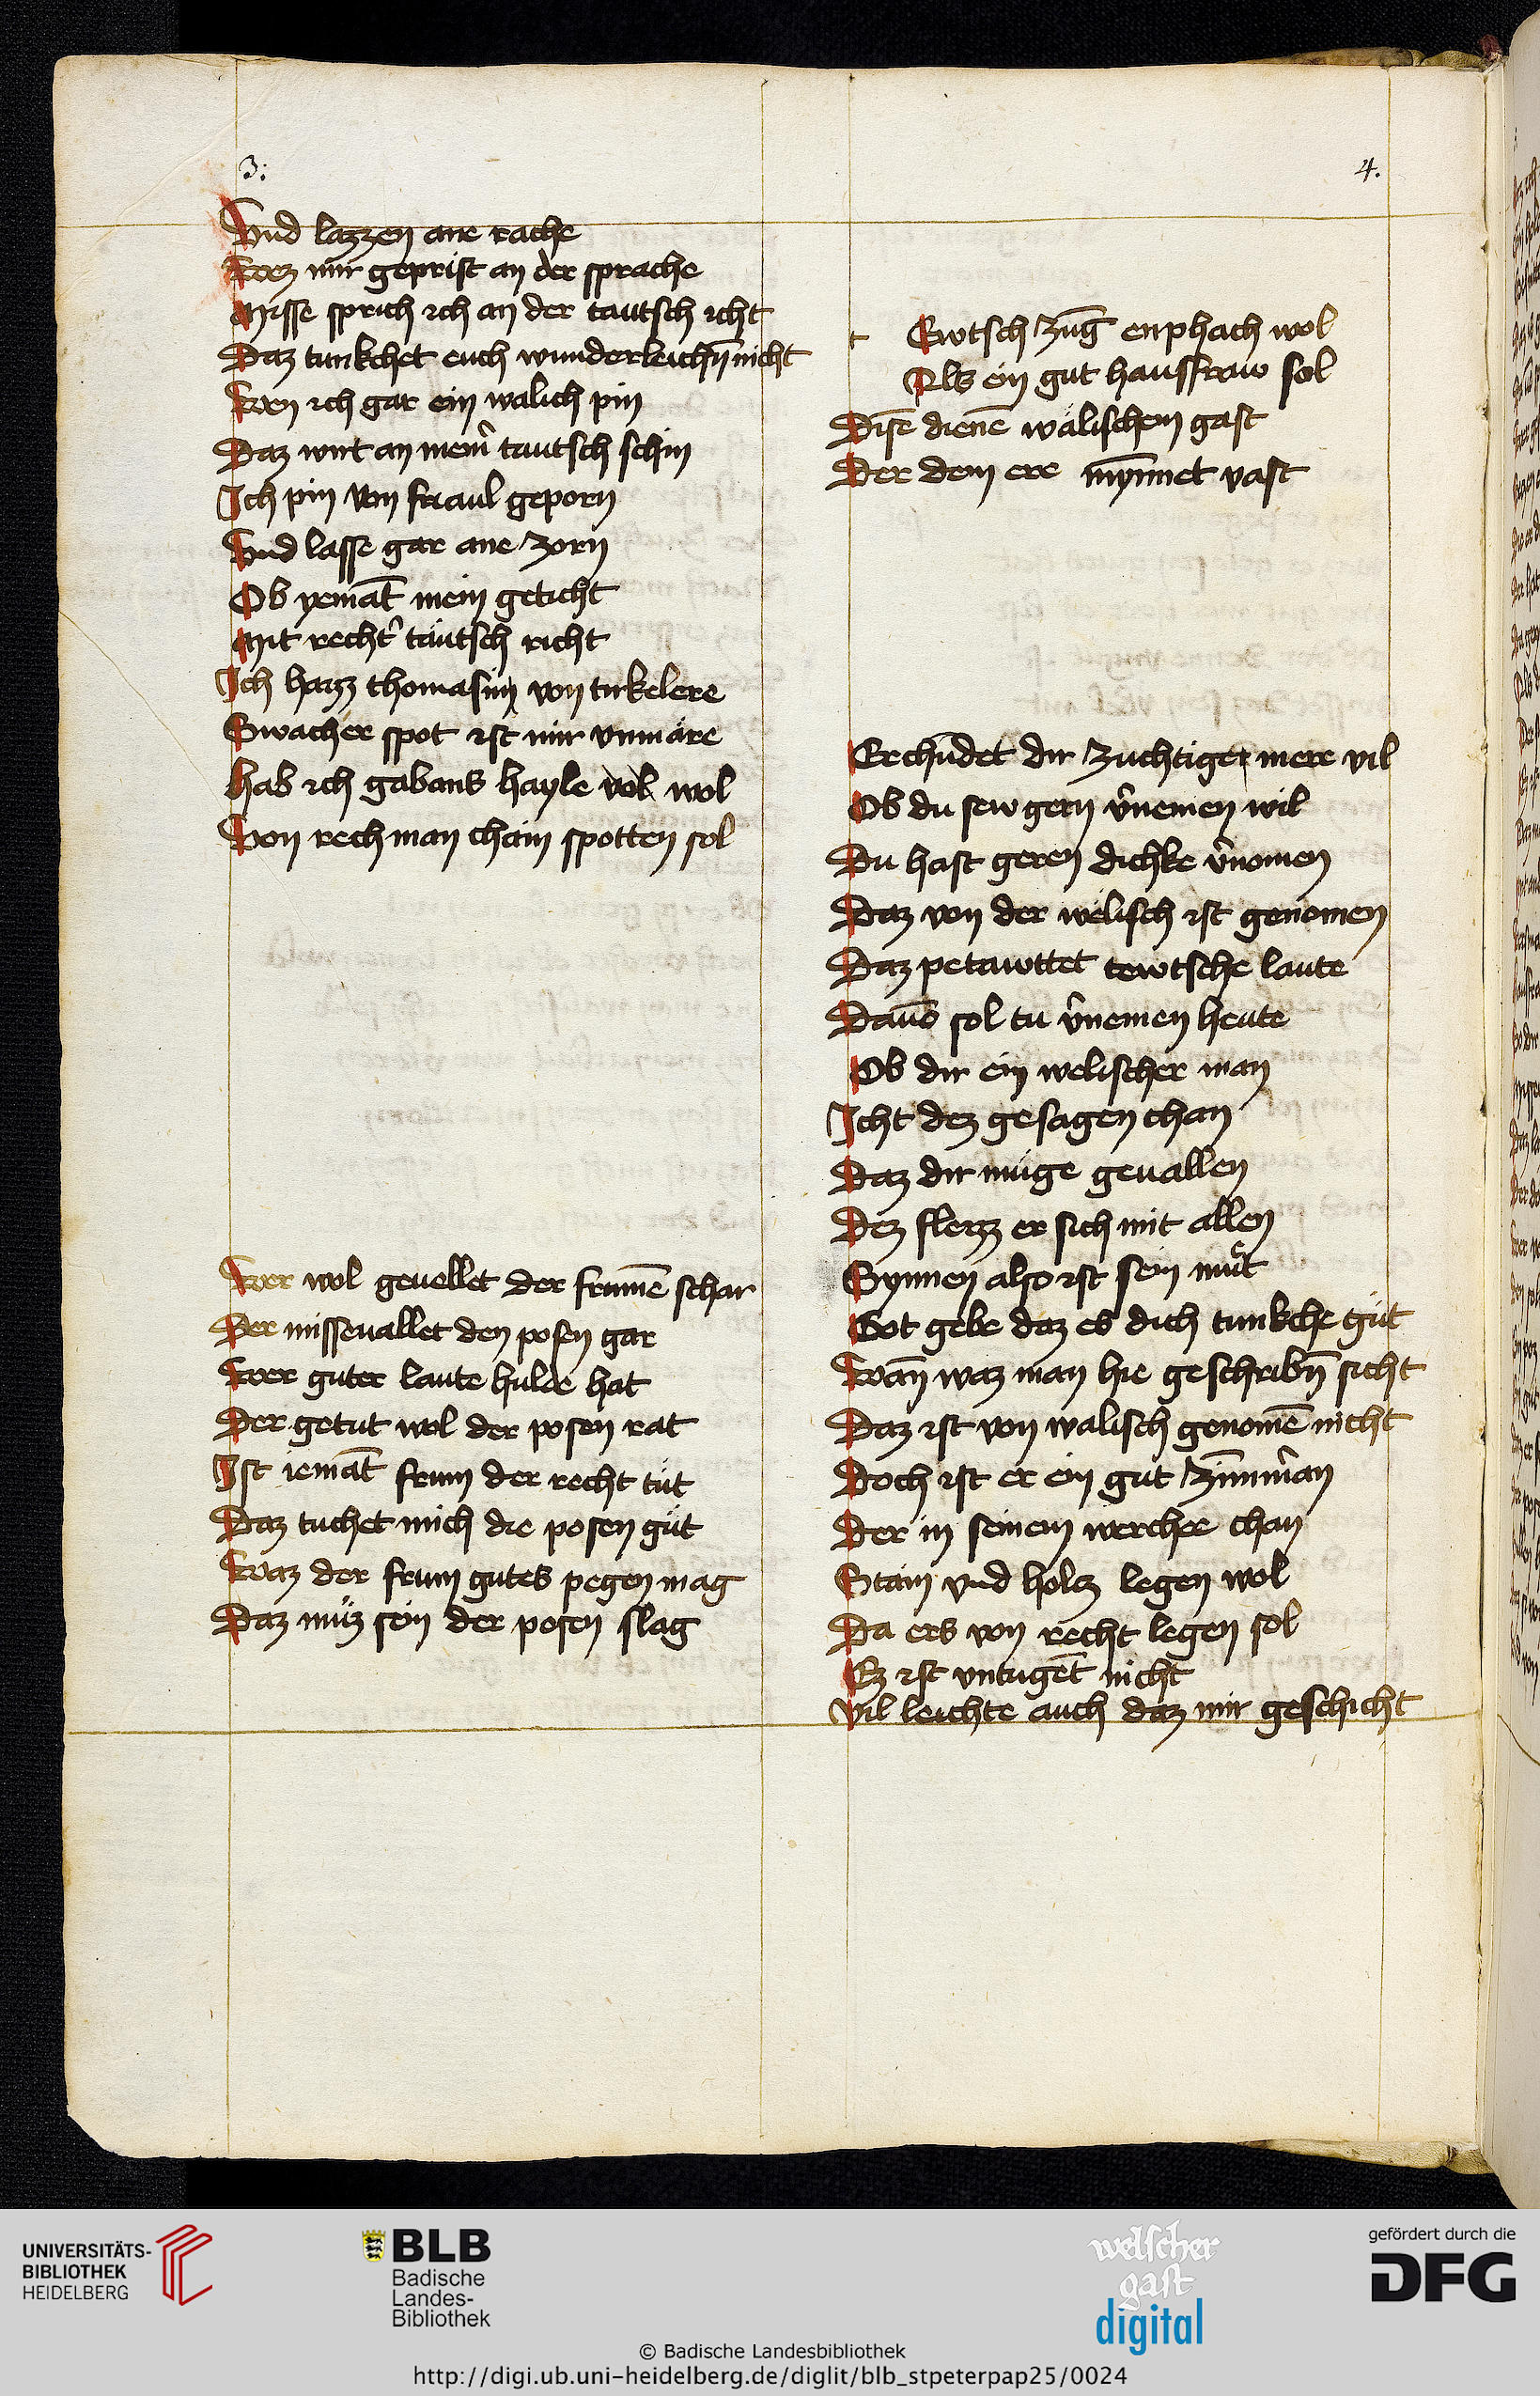 3:
Vnd lazzen ane rache
Wez mir geprist an der sprache
Misse sprich ich an der tautsch icht
Daz tunkchet euch wunderleichn̄ nicht
Wen ich gar ein walich pin
Daz wirt an mein̄ tautsch schin
Ich pin von friaul geporn
Vnd lasse gar ane zorn
Ob yemāt mein geticht
Mit recht̄ täutsch richt
Ich haizz thomasiin von tirkelere
Swacher spot ist mir vnmäre
hab ich gabans hayle vol wol
Von rech man chain spotten sol
Wer wol geuellet der frumē schar
Der misseuallet den posen gar
Wer guter laute hulde hat
Der getut wol der posen rat
Ist iemāt frum der recht tüt
Daz tuchet mich die posen güt
Waz der frum gutes pegen mag
Daz müz sein der posen slag
4.
t Ewtsch zūg enphach wol
Als ein gut hausfraw sol
Disē dienē wälischem gast
Der dem ere mȳnnet vast
Erchūdet dir zuchtiger mere vil
Ob du sew gern v̄nemen wil
Du hast geren dichke v̄nomen
Daz von der wëlisch ist genomen
Daz petawttet tewtsche laute
Dauō sol tu v̄nemen heute
Ob dir ein welischer man
Icht dez gesagen chan
Daz dir müge geuallen
Dez fleizz er sich mit allen
Synnen also ist sein müt
Got gebe daz es dich tunkche güt
Wan̄ waz man hie geschribn̄ sicht
Daz ist von walisch genomē nicht
Doch ist er ein gut zim̄m̄an
Der in seinem wercher chan
Stain vnd holcz legen wol
Da ers von recht legen sol
Ez ist vntugēt nicht
Vil leichte auch daz mir geschicht
UNIVERSITÄTS-
BIBLIOTHEK
HEIDELBERG
BLB
Badische
Landes-
Bibliothek
welscher
gast
digital
gefördert durch die
DFG
© Badische Landesbibliothek
http://digi.ub.uni-heidelberg.de/diglit/blb_stpeterpap25/0024